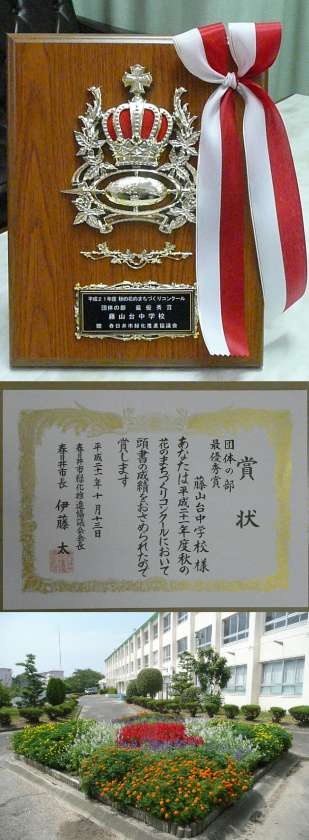 平成21年度 秋の花のまちづくりコンクール
団体の部 最優秀賞
藤山台中学校
贈 春日井市緑化推進協議会
賞状
団体の部
最優秀賞
藤山台中学校 様
あなたは平成二十一年度秋の
花のまちづくりコンクールにおいて
頭書の成績をおさめられたので
賞します
平成二十一年十月十三日
春日井市緑化推進協議会会長
春日井市長 伊藤 太